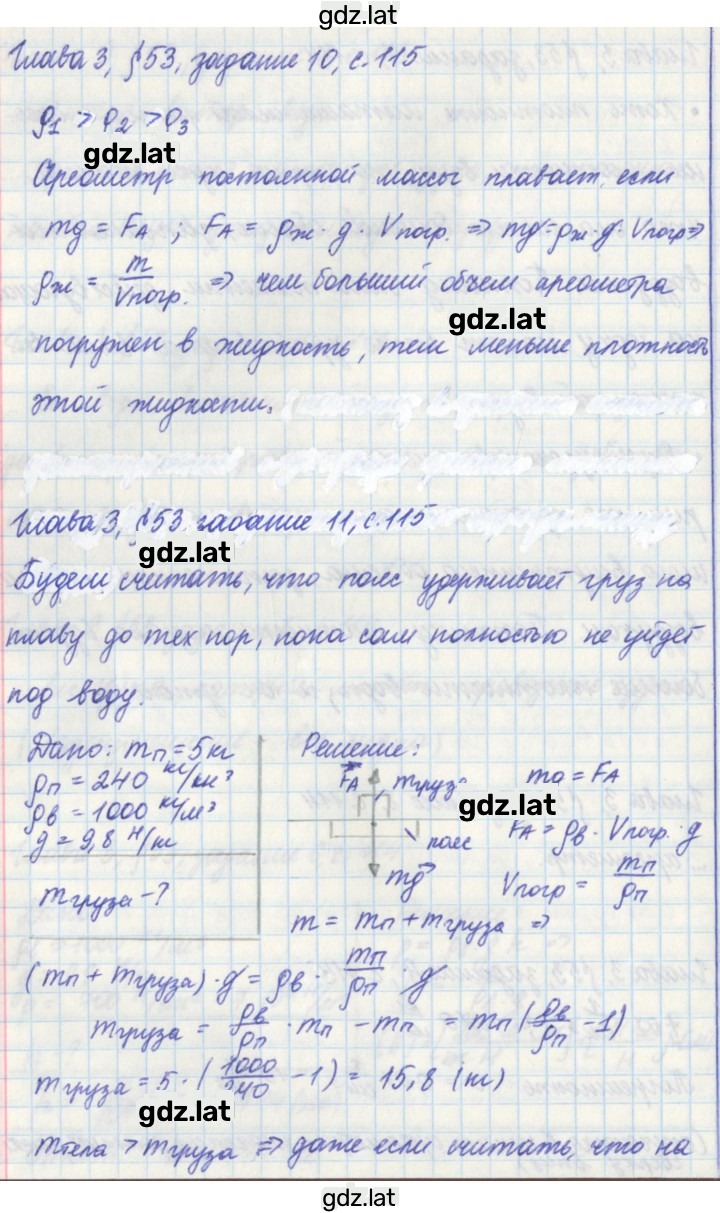 gdz.lat
Глава 3, §53, задание 10, с.115
ρ₁ > ρ₂ > ρ₃
gdz.lat
Ареометр постоянной массы плавает, если
mg = FA ; FA = ρж · g · Vпогр. ⇒ mg = ρж · g · Vпогр ⇒
ρж = m/Vпогр. ⇒ чем больший объем ареометра
gdz.lat
погружен в жидкость, тем меньше плотность
этой жидкости.
Глава 3, §53 задание 11, с.115
gdz.lat
Будем считать, что пояс удерживает груз на
плаву до тех пор, пока сам полностью не уйдет
под воду.
Дано: mп = 5 кг
ρп = 240 кг/м³
ρв = 1000 кг/м³
g = 9,8 Н/кг
mгруза - ?
Решение:
FA mгруз
пояс
mg
mg = FA
gdz.lat
FA = ρв · Vпогр. · g
Vпогр = mп/ρп
m = mп + mгруза ⇒
(mп + mгруза) · g = ρв · mп/ρп · g
mгруза = ρв/ρп · mп - mп = mп (ρв/ρп - 1)
mгруза = 5 · (1000/240 - 1) = 15,8 (кг)
gdz.lat
mтела > mгруза ⇒ даже если считать, что на
gdz.lat